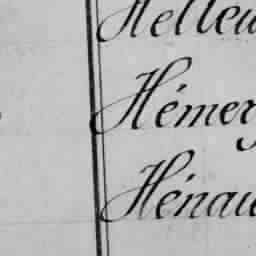 Helleu
Hémery
Hénau